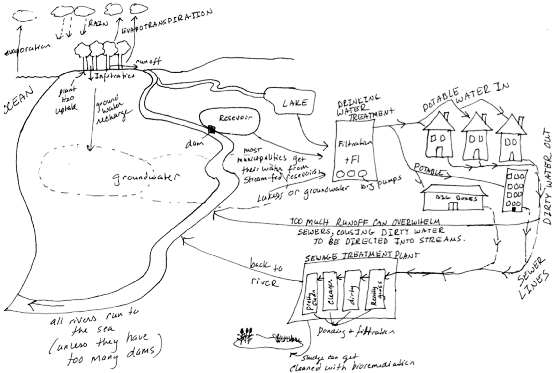 RAIN
EVAPOTRANSPIRATION
evaporation
runoff
Infiltration
plant
H2O
uptake
ground
water
recharge
OCEAN
Reservoir
dam
LAKE
groundwater
most
municipalities get
their water from
stream-fed reservoirs
Lakes or groundwater
DRINKING
WATER
TREATMENT
Filtration
+Fl
big pumps
POTABLE
WATER IN
POTABLE
BIG BOXES
DIRTY WATER OUT
SEWER
LINES
TOO MUCH RUNOFF CAN OVERWHELM
SEWERS, CAUSING DIRTY WATER
TO BE DIRECTED INTO STREAMS.
SEWAGE TREATMENT PLANT
back to
river
pretty
clean
cleaner
dirty
Really
gross
Ponding + filtration
sludge can get
cleaned with bioremediation
all rivers run to
the sea
(unless they have
too many dams)